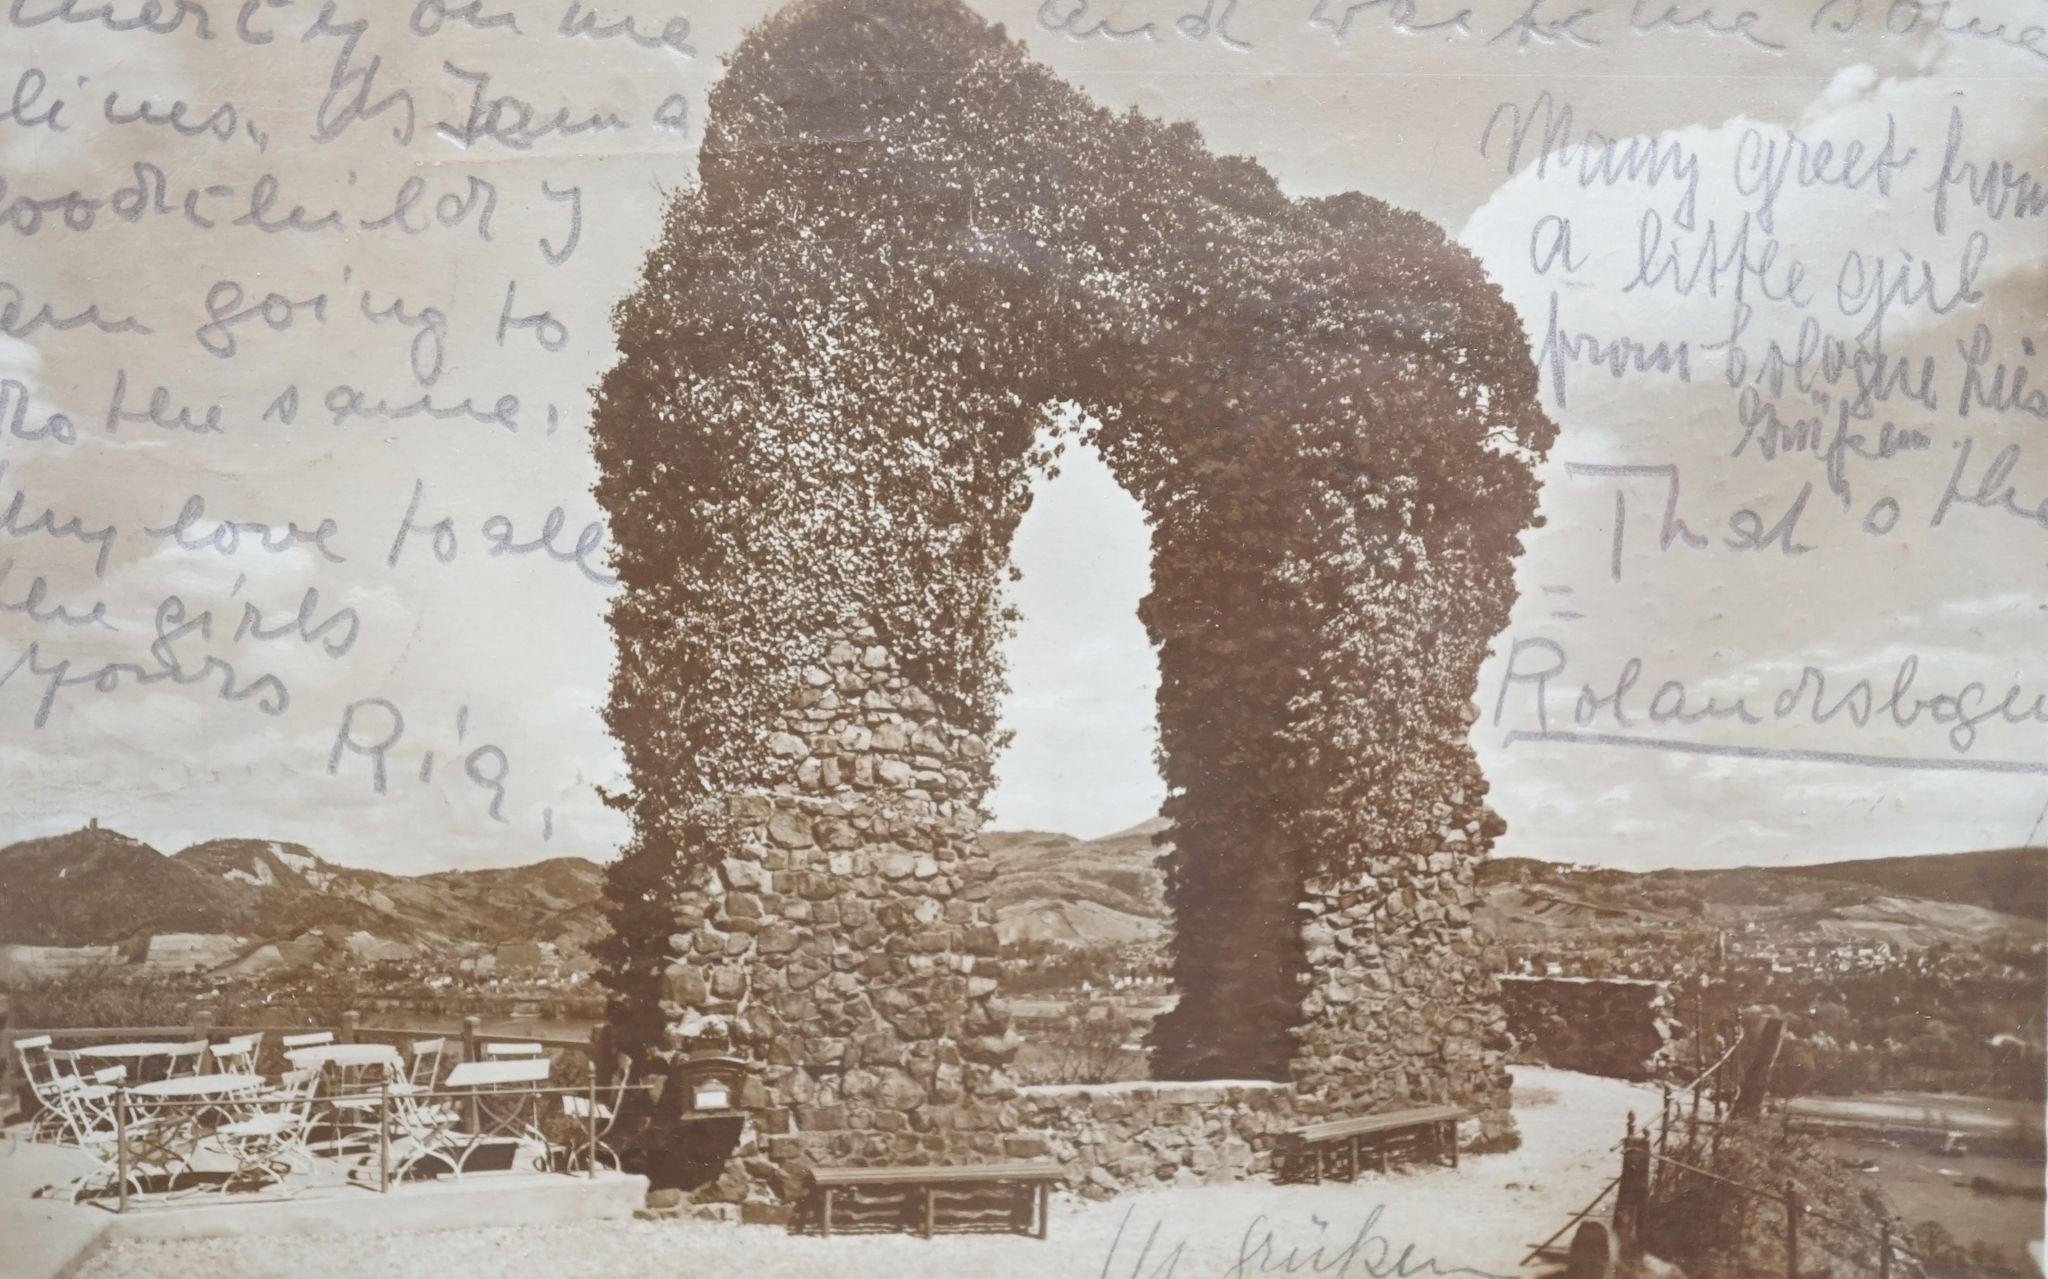 mercy on me and write me some
lines. As I am a
good child I
am going to
do the same.
My love to all
the girls
Yours
Ria,
Many greet from
a little girl
from Cologne
That's the
Rolandsbogen
grüßen